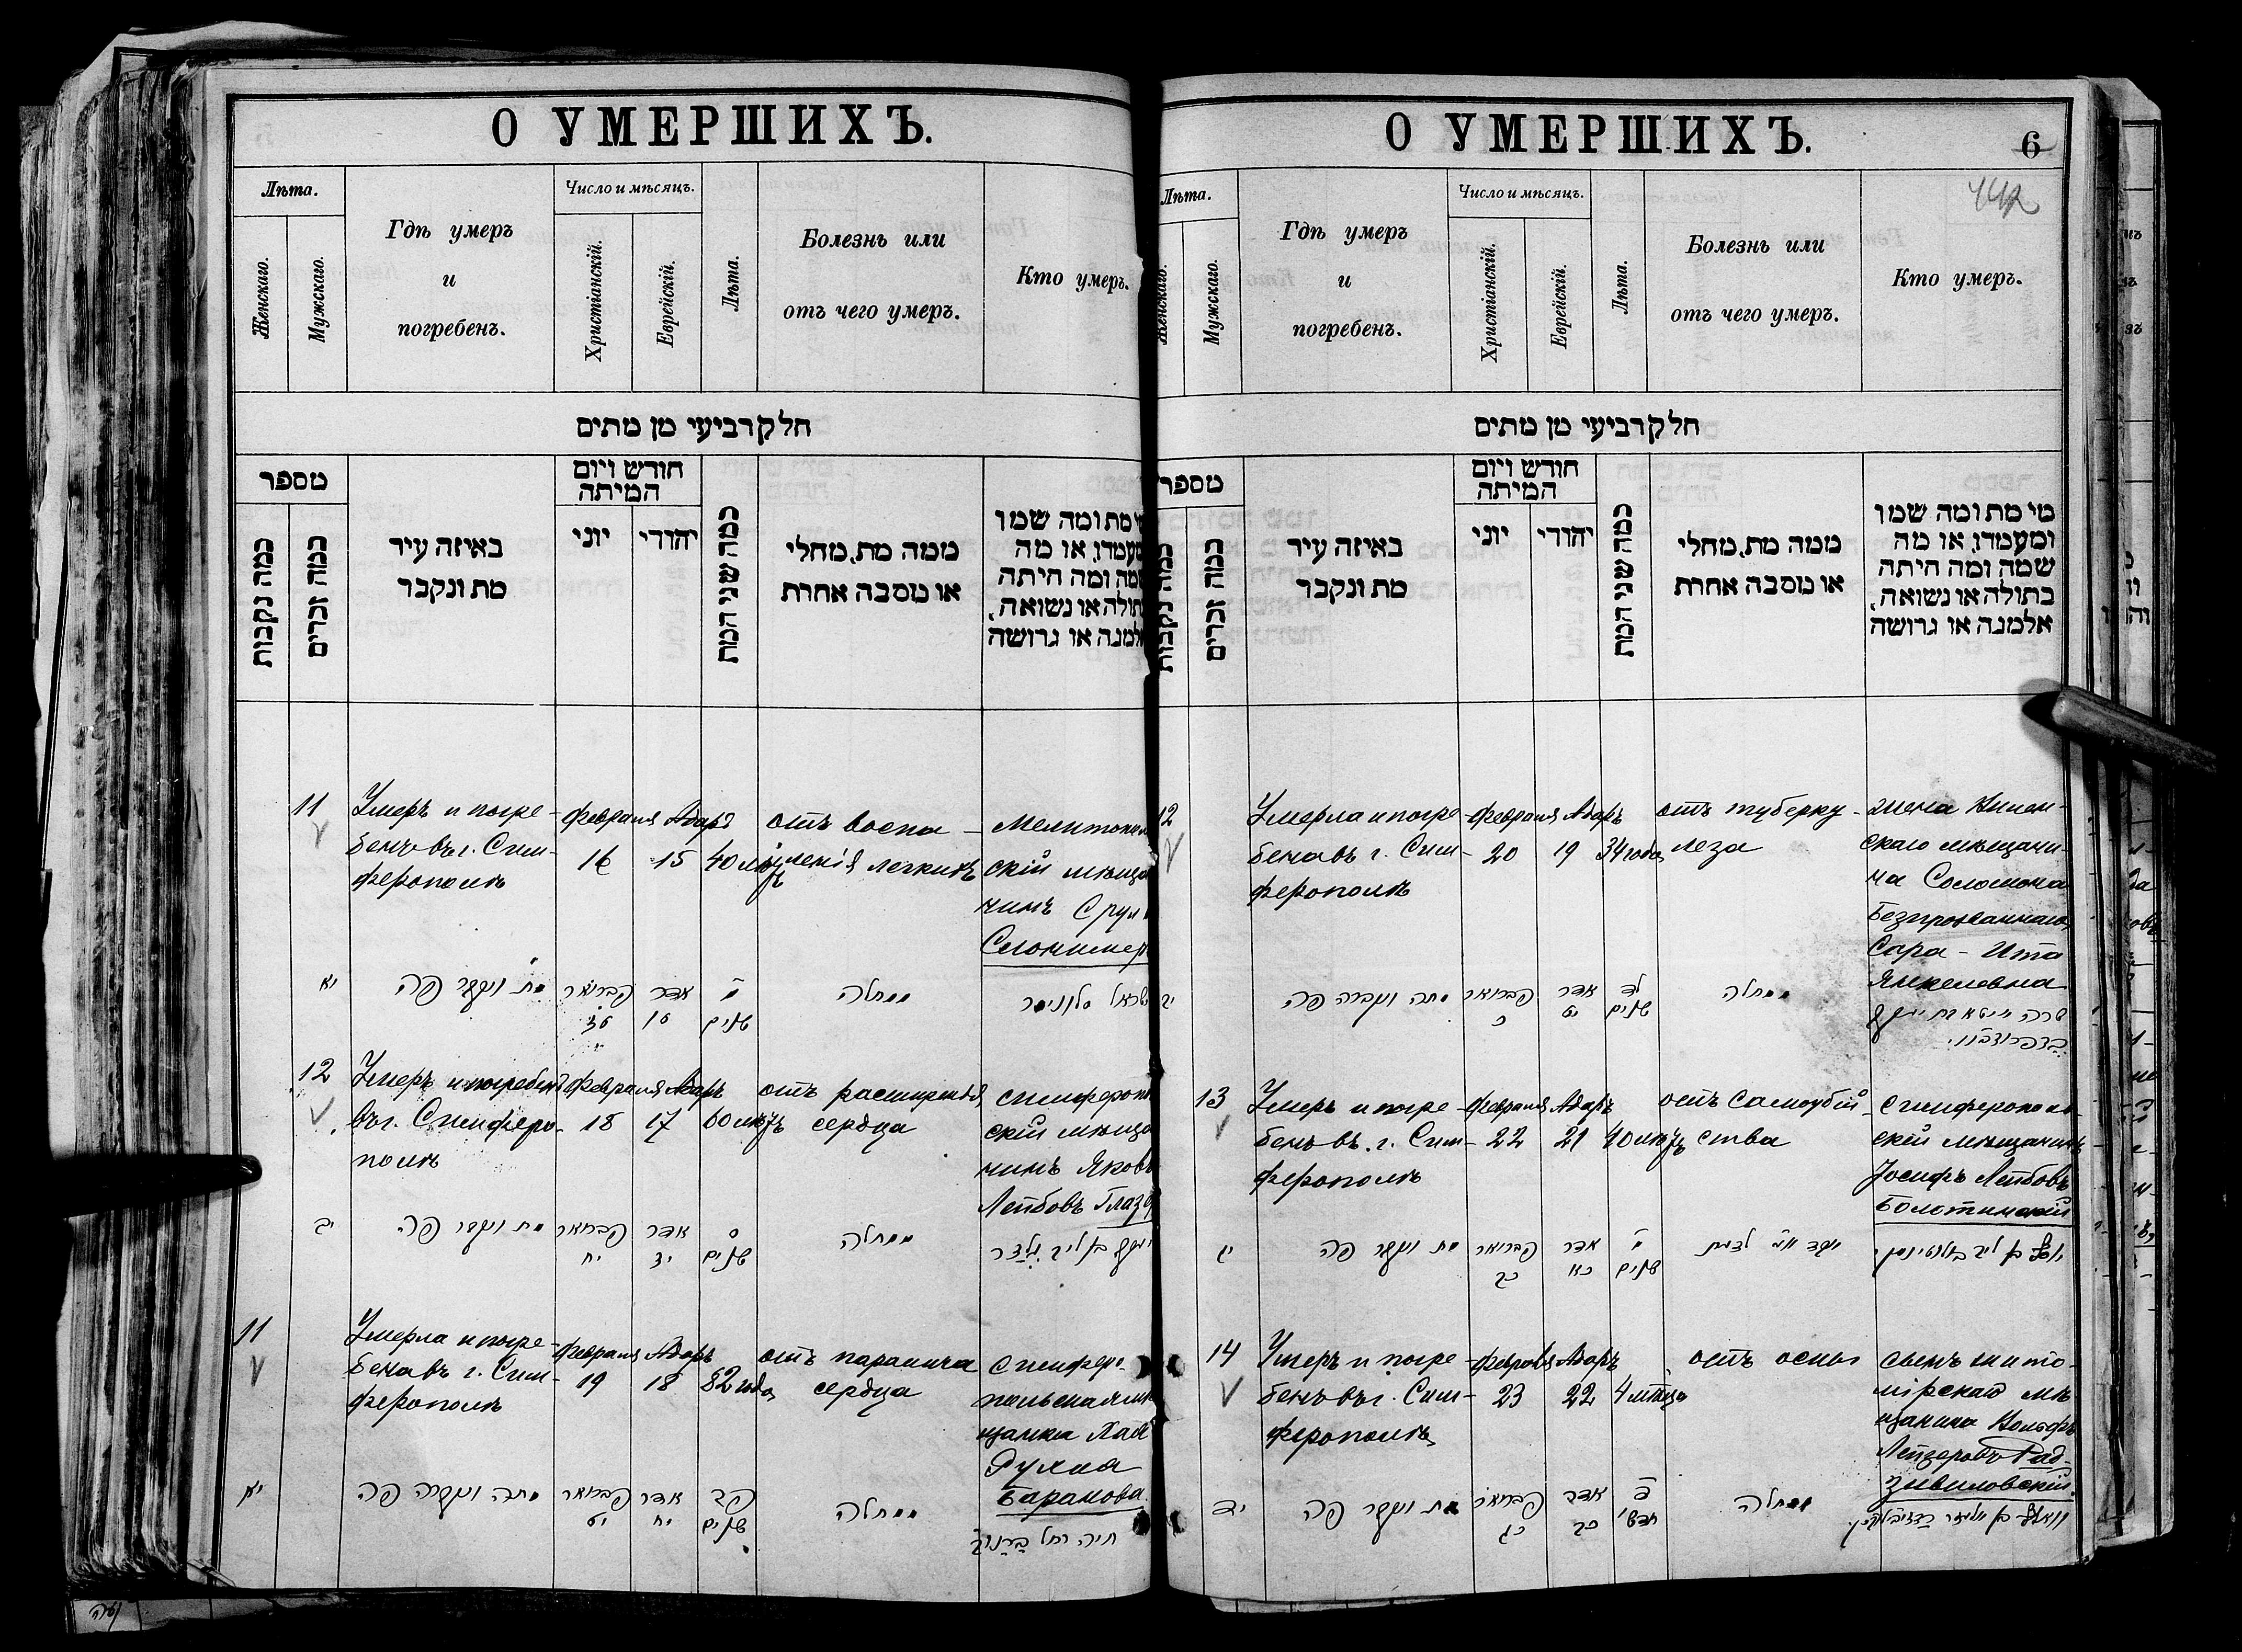 О УМЕРШИХЪ.
Лѣта.
Женскаго.
Мужскаго.
Гдѣ умеръ
и
погребенъ.
Число и мѣсяцъ.
Христіанскій.
Еврейскій.
Лѣта.
Болезнь или
отъ чего умеръ.
Кто умеръ.
חלק רביעי מן מתים
מספר
כמה נקבות
כמה זכרים
באיזה עיר
מת ונקבר
חודש ויום
המיתה
יוני
יהודי
כמה שני המת
ממה מת, מחלי
או מסבה אחרת
מי מת ומה שמו
ומעמדו, או מה
שמה ומה היתה
בתולה או נשואה,
אלמנה או גרושה
11
Умеръ и погре-
бенъ въ г. Сим-
ферополѣ
февраля
16
Адаръ
15
40 лѣтъ
отъ воспа-
ленія легкихъ
Мелитополь
скій мѣща
нинъ Срул
Слонимер
יא
מת ונקבר פה
פברואר
טז
אדר
טו
מ
שנים
ממחלה
ישראל סלונימר
12
Умеръ и погребенъ
въ г. Симферо-
полѣ
февраля
18
Адаръ
17
60 лѣтъ
отъ расширенія
сердца
симферопо
скій мѣща
нинъ Яковъ
Лейбовъ Глазер
יב
מת ונקבר פה
פברואר
יח
אדר
יז
ס
שנים
ממחלה
יעקב בן ליב גלזר
11
Умерла и погре-
бена въ г. Сим-
ферополѣ
февраля
19
Адаръ
18
82 года
отъ паралича
сердца
симферо-
польская мѣ
щанка Хая
Рухля
Баранова
יא
מתה ונקברה פה
פברואר
יט
אדר
יח
פב
שנים
ממחלה
חיה רחל ברנוב
О УМЕРШИХЪ.
6
Лѣта.
Женскаго.
Мужскаго.
Гдѣ умеръ
и
погребенъ.
Число и мѣсяцъ.
Христіанскій.
Еврейскій.
Лѣта.
Болезнь или
отъ чего умеръ.
Кто умеръ.
חלק רביעי מן מתים
מספר
כמה נקבות
כמה זכרים
באיזה עיר
מת ונקבר
חודש ויום
המיתה
יוני
יהודי
כמה שני המת
ממה מת, מחלי
או מסבה אחרת
מי מת ומה שמו
ומעמדו, או מה
שמה ומה היתה
בתולה או נשואה,
אלמנה או גרושה
12
Умерла и погре-
бена въ г. Сим-
ферополѣ
февраля
20
Адаръ
19
34 года
отъ туберку-
леза
жена
скаго мѣщани-
на Соломона
Безпрозваннаго
Сара-Ита
Янкелевна
יב
מתה ונקברה פה
פברואר
כ
אדר
יט
לד
שנים
ממחלה
שרה איטא בת יעקב
13
Умеръ и погре-
бенъ въ г. Сим-
ферополѣ
февраля
22
Адаръ
21
40 лѣтъ
отъ самоубій-
ства
симферополь-
скій мѣщанинъ
Іосифъ Лейбовъ
Болотинскій
יג
מת ונקבר פה
פברואר
כב
אדר
כא
מ
שנים
לדעת
יוסף בן ליב בולוטינסקי
14
Умеръ и погре-
бенъ въ г. Сим-
ферополѣ
февраля
23
Адаръ
22
4 мѣсяца
отъ оспы
сынъ жито-
мірскаго мѣ
щанина Вольфъ
Лейзеровъ Рад-
зивиловскій.
יד
מת ונקבר פה
פברואר
כג
אדר
כב
ד
חדשי
ממחלה